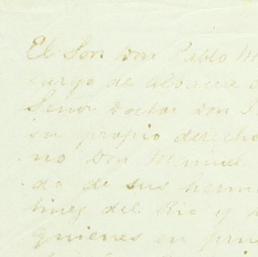 El Sor. Don Pablo M
cargo de Albacea d
Señor Doctor Don J
su propio derecho
no Don Manuel
do de sus herm
tinez del Rio y
quienes en